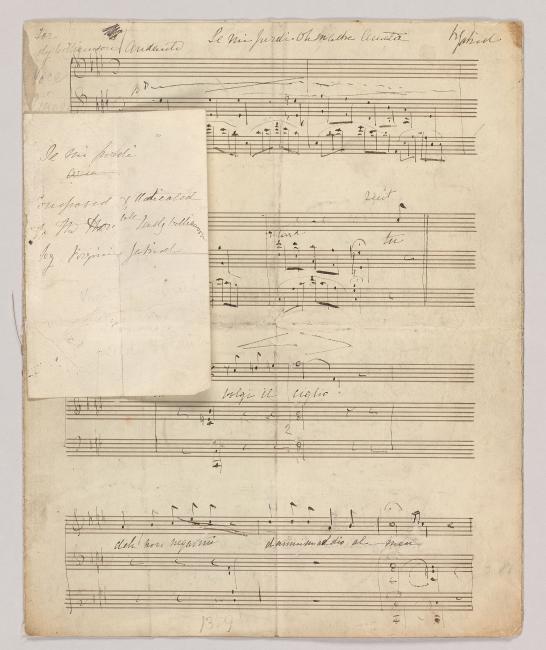 For
Lady Williamson
Andante
Se mi perdi Oh Madre Amata
V Gabriel
Voce
Se mi perdi
aria
Composed & dedicated
to The Honble Lady Williamson
by Virginia Gabriel
recit
tu
volgi il ciglio
2
deh! non negarmi
mio
139